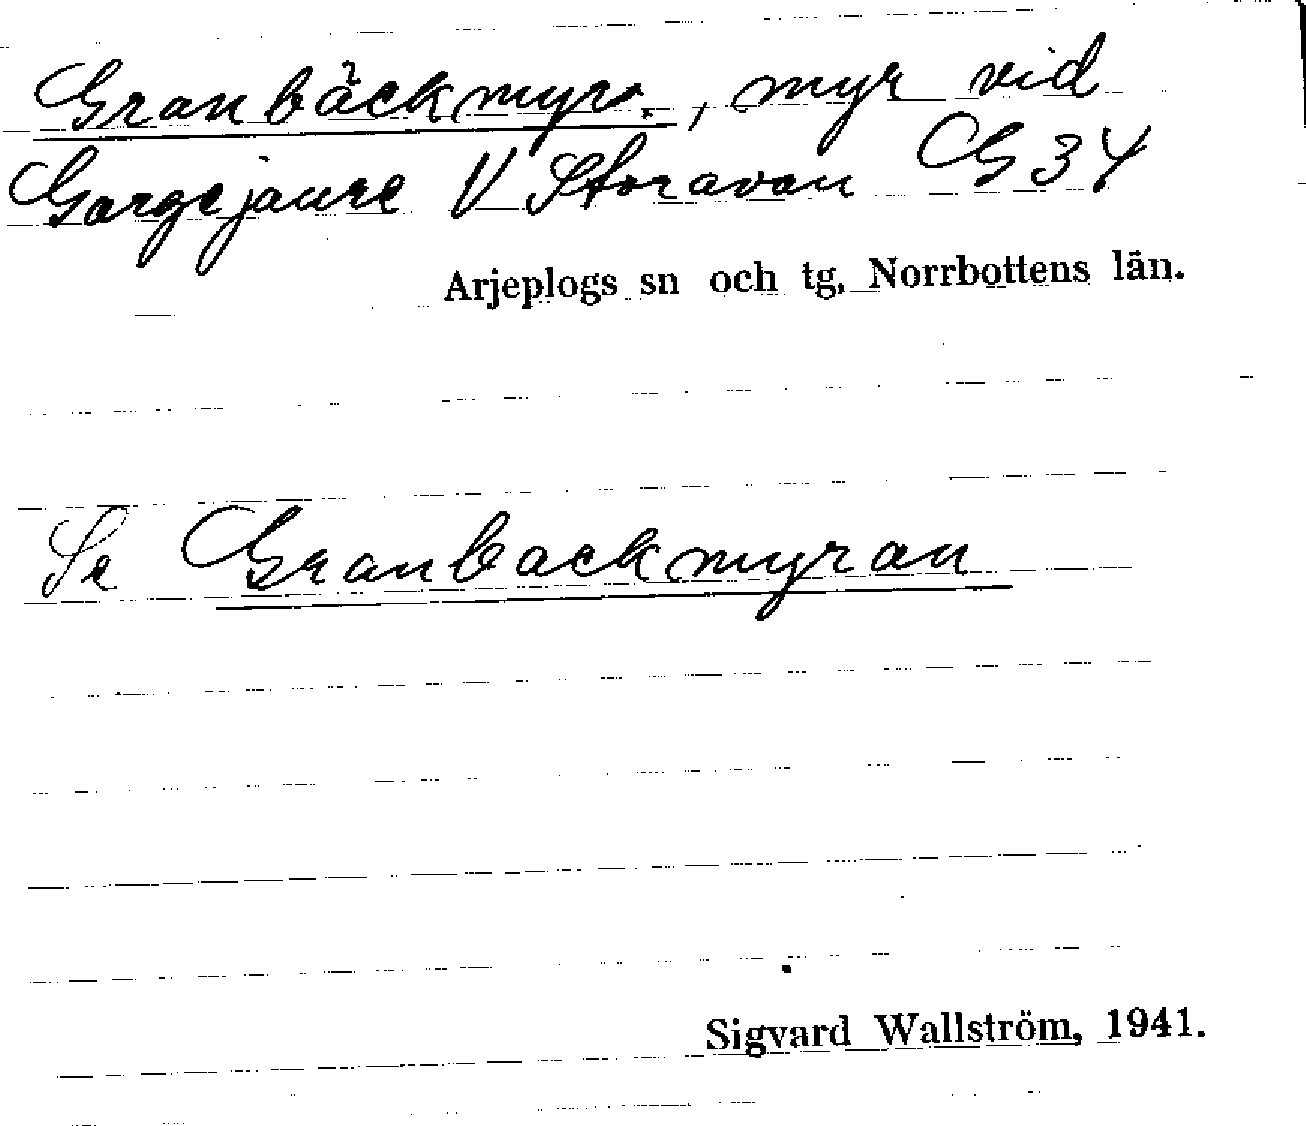 Granbäckmyrs., myr vid
Gargejaure V Storavan G34
Arjeplogs sn och tg, Norrbottens län.
Se Granbackmyran
Sigvard Wallström, 1941.